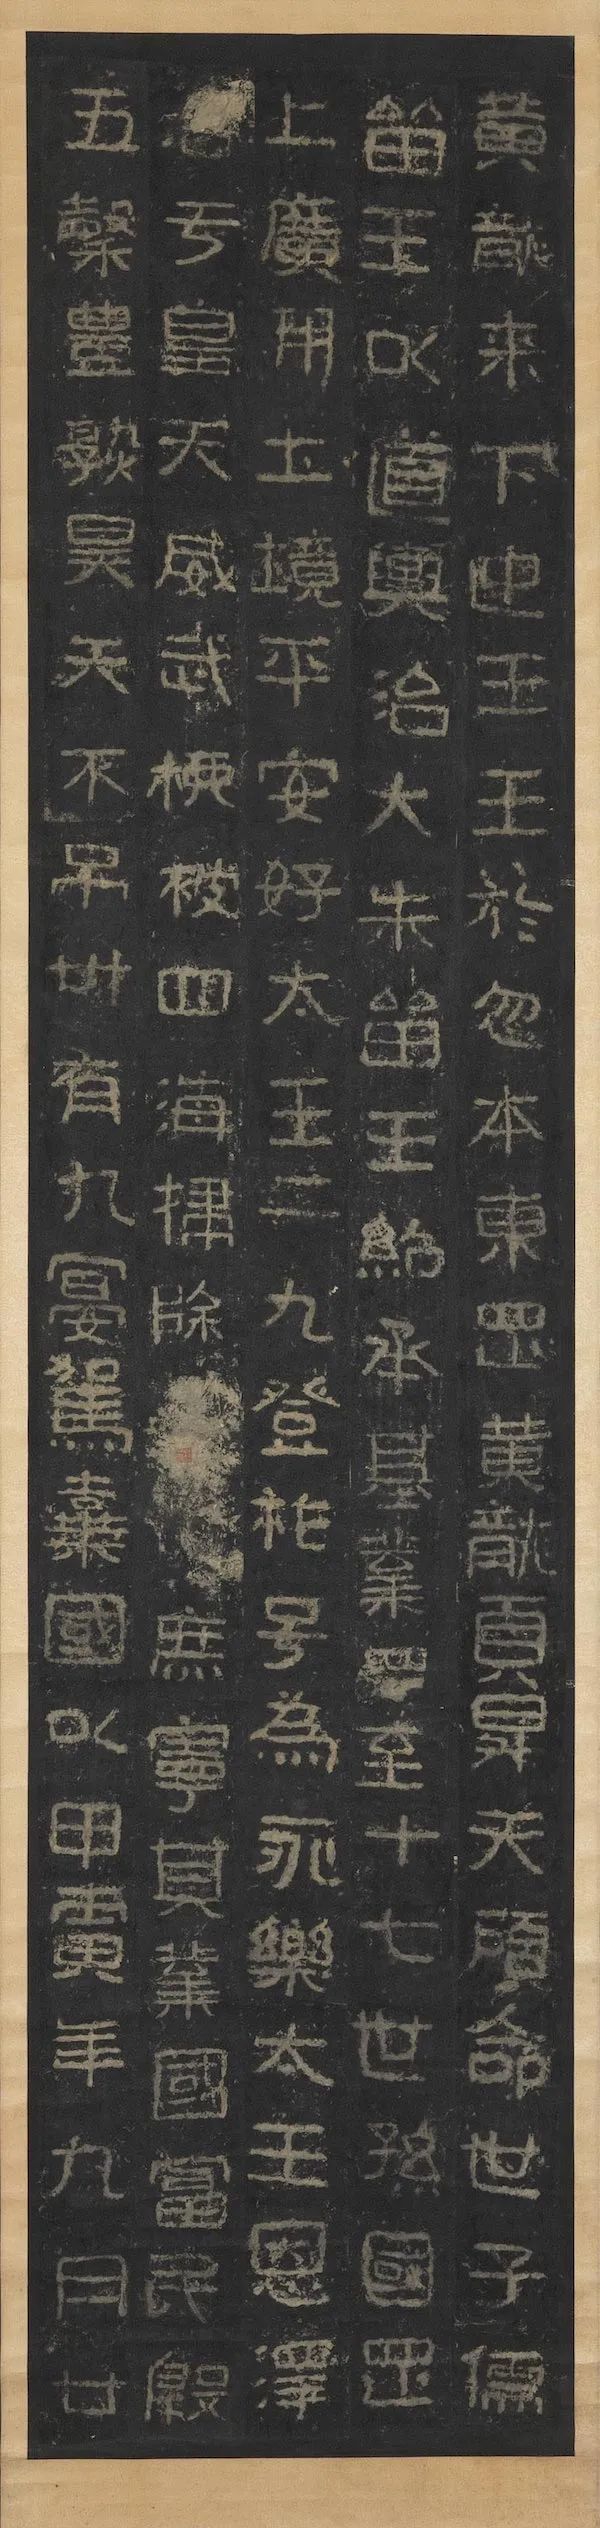 黃龍来下迎王王於忽本東罡黃龍頁昇天顧命世子儒
留王以道興治大朱留王紹承基業遝至十七世孫國罡
上廣開土境平安好太王二九登祚号為永樂太王恩澤
于皇天威武振被四海掃除庶寧其業國富民殷
五穀豊熟昊天不弔卅有九宴駕棄國以甲寅年九月廿